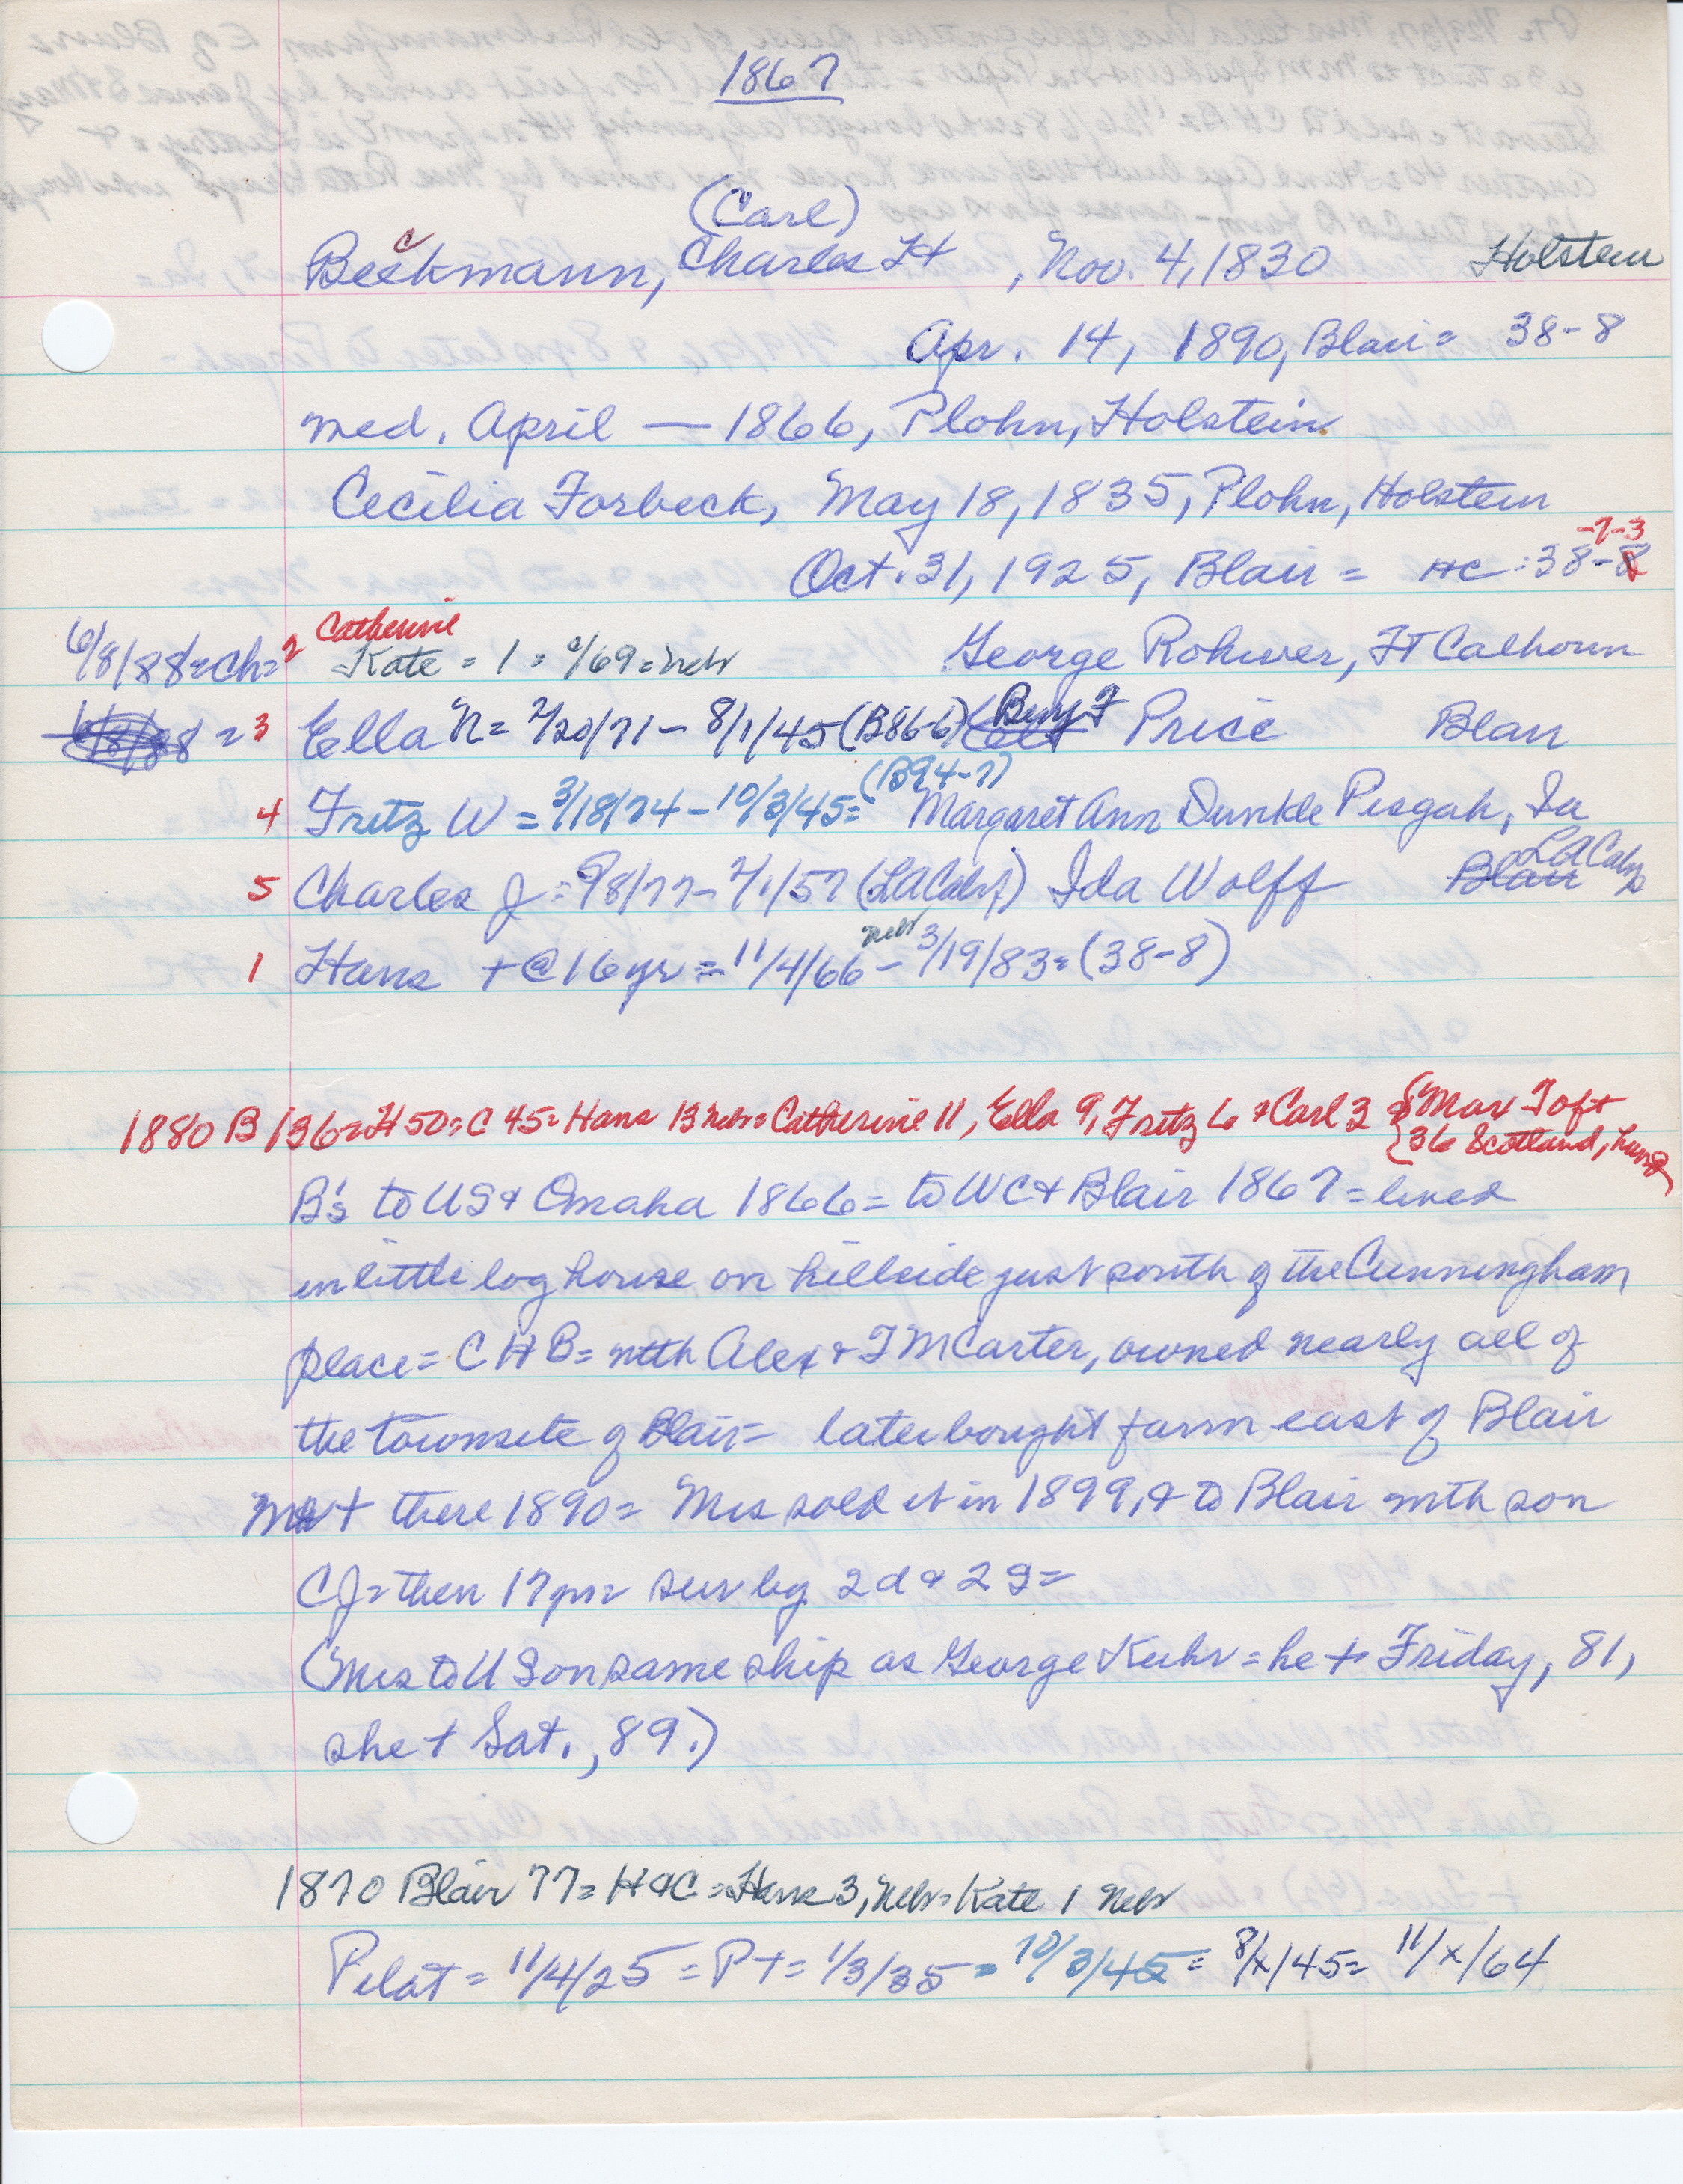 1867
(Carl)
Beckmann, Charles H , Nov. 4, 1830 Holstein
Apr. 14, 1890, Blair = 38-8
med. April — 1866, Plohn, Holstein
Cecilia Forbeck, May 18, 1835, Plohn, Holstein
-7-3
Oct. 31, 1925, Blair = HC: 38-8
Catherine
6/8/88 = Ch = 2 Kate = 1 = /69 = Nebr George Rohwer, Ft Calhoun
= 3 Ella N = 2/20/71 - 8/1/45 (B86-6) Benj F Price Blair
(B94-7)
4 Fritz W = 3/18/74 - 10/3/45 = Margaret Ann Dunkle Pisgah, Ia
5 Charles J = 9/8/77 - 2/1/57 (LA Calif) Ida Wolff Blair LA Calif
1 Hans + @ 16 yr = 11/4/66 Nebr - 3/19/83 = (38-8)
1880 B 136 = H 50 = C 45 = Hans 13 Nebr = Catherine 11, Ella 9, Fritz 6 & Carl 3 & { Max Toft
36 Scotland,
B's to US & Omaha 1866 = to WC & Blair 1867 = lived
in little log house on hillside just south of the Cunningham
place = C H B = with Alex & T M Carter, owned nearly all of
the townsite of Blair = later bought farm east of Blair
+ there 1890 = Mrs sold it in 1899, & to Blair with son
CJ = then 17 yrs = surv by 2 d & 2 s =
(Mrs to U S on same ship as George Kuhr = he + Friday, 81,
she + Sat., 89.)
1870 Blair 77 = H & C = Hans 3, Nebr = Kate 1 Nebr
Pilot = 11/4/25 = P + = 1/3/35 = 10/3/45 = 8/x/45 = 11/x/64